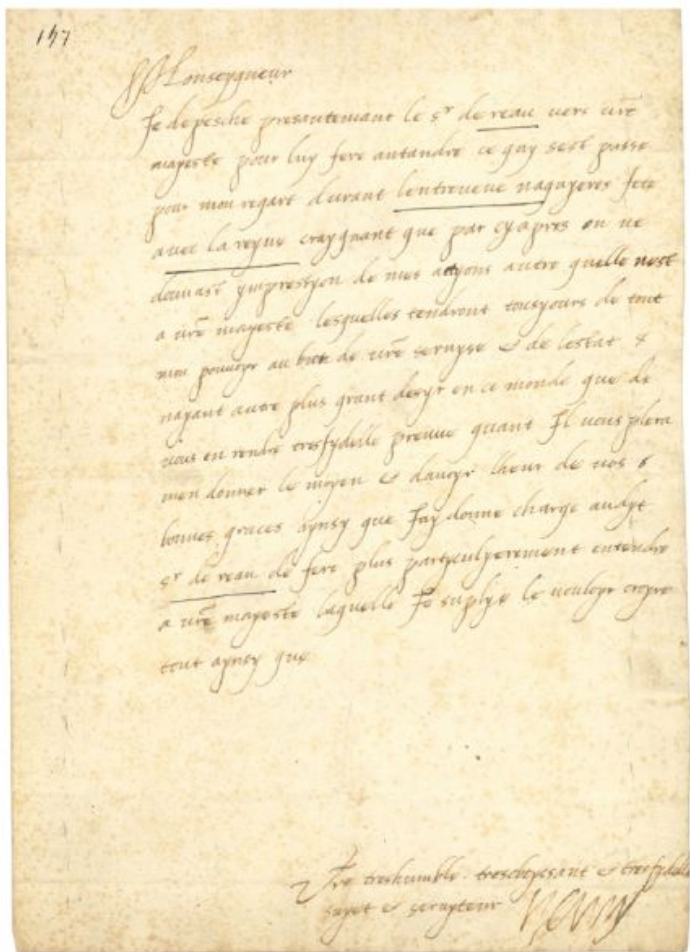 147
Monseygneur
Je depesche presantemant le sr de reau vers vre
mageste pour luy fere antandre ce quy sest passe
pour mon regart durant lentreveue naguyeres fete
avec la reyne crayguant que par cyapres on ne
donnast ympressyon de mes actyons autre quelle nest
a vre mageste lesquelles tendront tousyours de tout
mon pouvoyr au but de vre servyse & de lestat &
nayant autre plus grant desyr en ce monde que de
vous en rendre tresfydelle preuve quant Il vous plera
men donner le moyen & davoyr lheur de vos
bonnes graces aynsy que Jay donne charge audyt
sr de reau de fere plus partyculyerement entendre
a vre mageste laquelle Je suplye le vouloyr croyre
tout aynsy que
Vre treshumble tresobeyssant & tresfydelle
suget & servyteur Henry